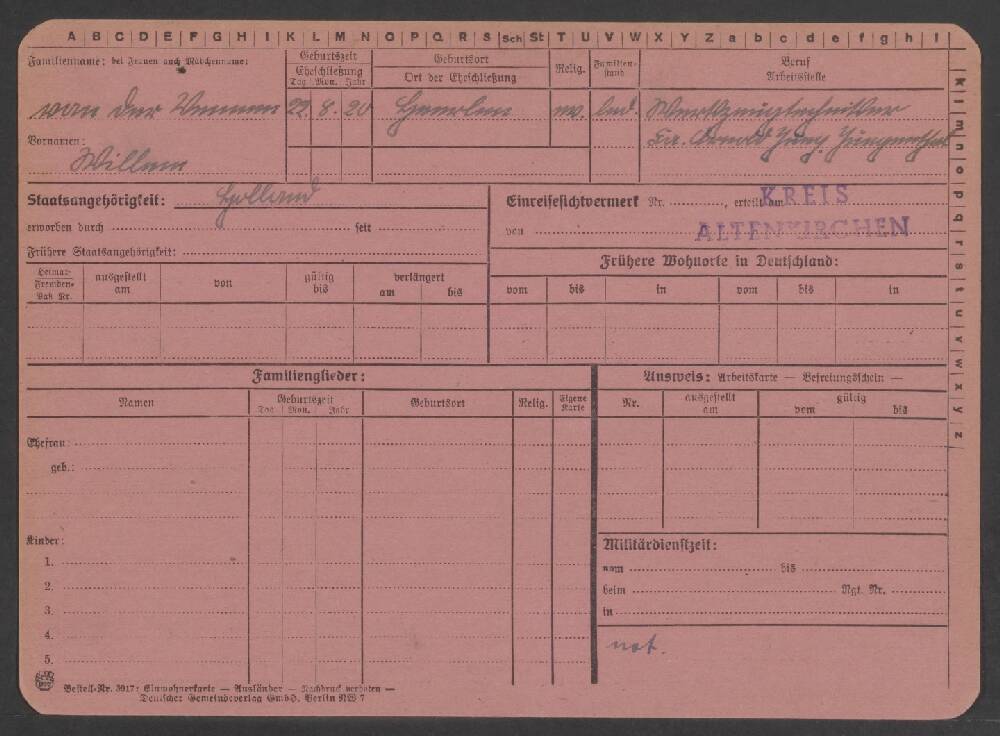 A B C D E F G H I K L M N O P Q R S Sch St T U V W X Y Z a b c d e f g h i
k l m n o p q r s t u v w x y z
Familienname; bei Frauen auch Mädchenname:
Geburtszeit
Eheschließung
Tag Mon. Jahr
Geburtsort
Ort der Eheschließung
Relig.
Familien-
stand
Beruf
Arbeitsstelle
van der 22. 8. 20 Heerlen ev. led. Werkzeugtechniker
Vornamen:
Fa. Arnold Jung, Jungenthal
Willem
Staatsangehörigkeit: Holland
erworben durch seit
Frühere Staatsangehörigkeit:
Einreisesichtvermerk Nr. , erteilt am
von
KREIS
ALTENKIRCHEN
Heimat-
Fremden-
Paß Nr.
ausgestellt
am
von
gültig
bis
verlängert
am bis
Frühere Wohnorte in Deutschland:
vom bis in vom bis in
Familienglieder:
Namen
Geburtszeit
Tag Mon. Jahr
Geburtsort
Relig.
Eigene
Karte
Ausweis: Arbeitskarte — Befreiungsschein —
Nr.
ausgestellt
am
gültig
vom bis
Ehefrau:
geb.:
Kinder:
1.
2.
3.
4.
5.
Militärdienstzeit:
vom bis
beim Rgt. Nr.
in
not.
Bestell-Nr. 3917: Einwohnerkarte — Ausländer — Nachdruck verboten —
Deutscher Gemeindeverlag GmbH. Berlin NW 7